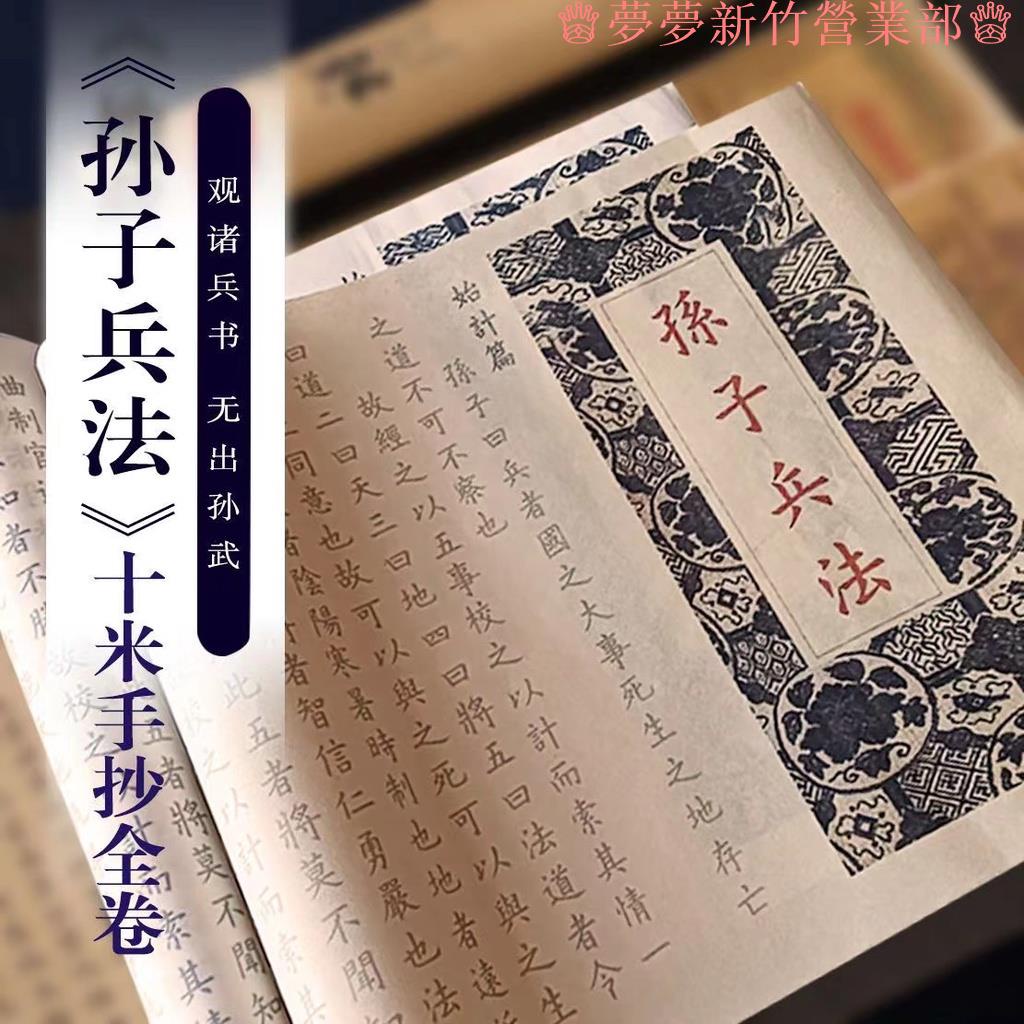 ♕夢夢新竹營業部♕
《孙子兵法》十米手抄全卷
观诸兵书 无出孙武
孫子兵法
始計篇
孫子曰兵者國之大事死生之地存亡
之道不可不察也
故經之以五事校之以計而索其情一
曰道二曰天三曰地四曰將五曰法道者令
同意也故可以與之死可以與之生
者陰陽寒暑時制也地者遠
者智信仁勇嚴也法
此五者將莫不聞知
之以計而索其
曲制官
者不勝
五者將莫不聞知
故校之
索其情